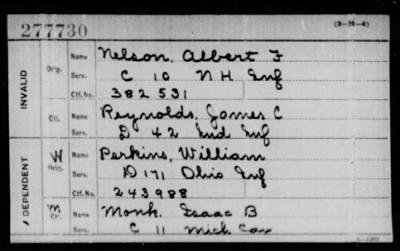 277730
(3-98-4)
INVALID
Orig.
Name Nelson, Albert F
Serv. C 10 N H Inf
Ctf. No. 382531
Ctf.
Name Reynolds, James C
Serv. D 42 Ind Inf
DEPENDENT
W
Orig.
Name Perkins, William
Serv. D 171 Ohio Inf
Ctf. No. 243988
M
Ctf.
Name Monk, Isaac B
Serv. C 11 Mich Cav